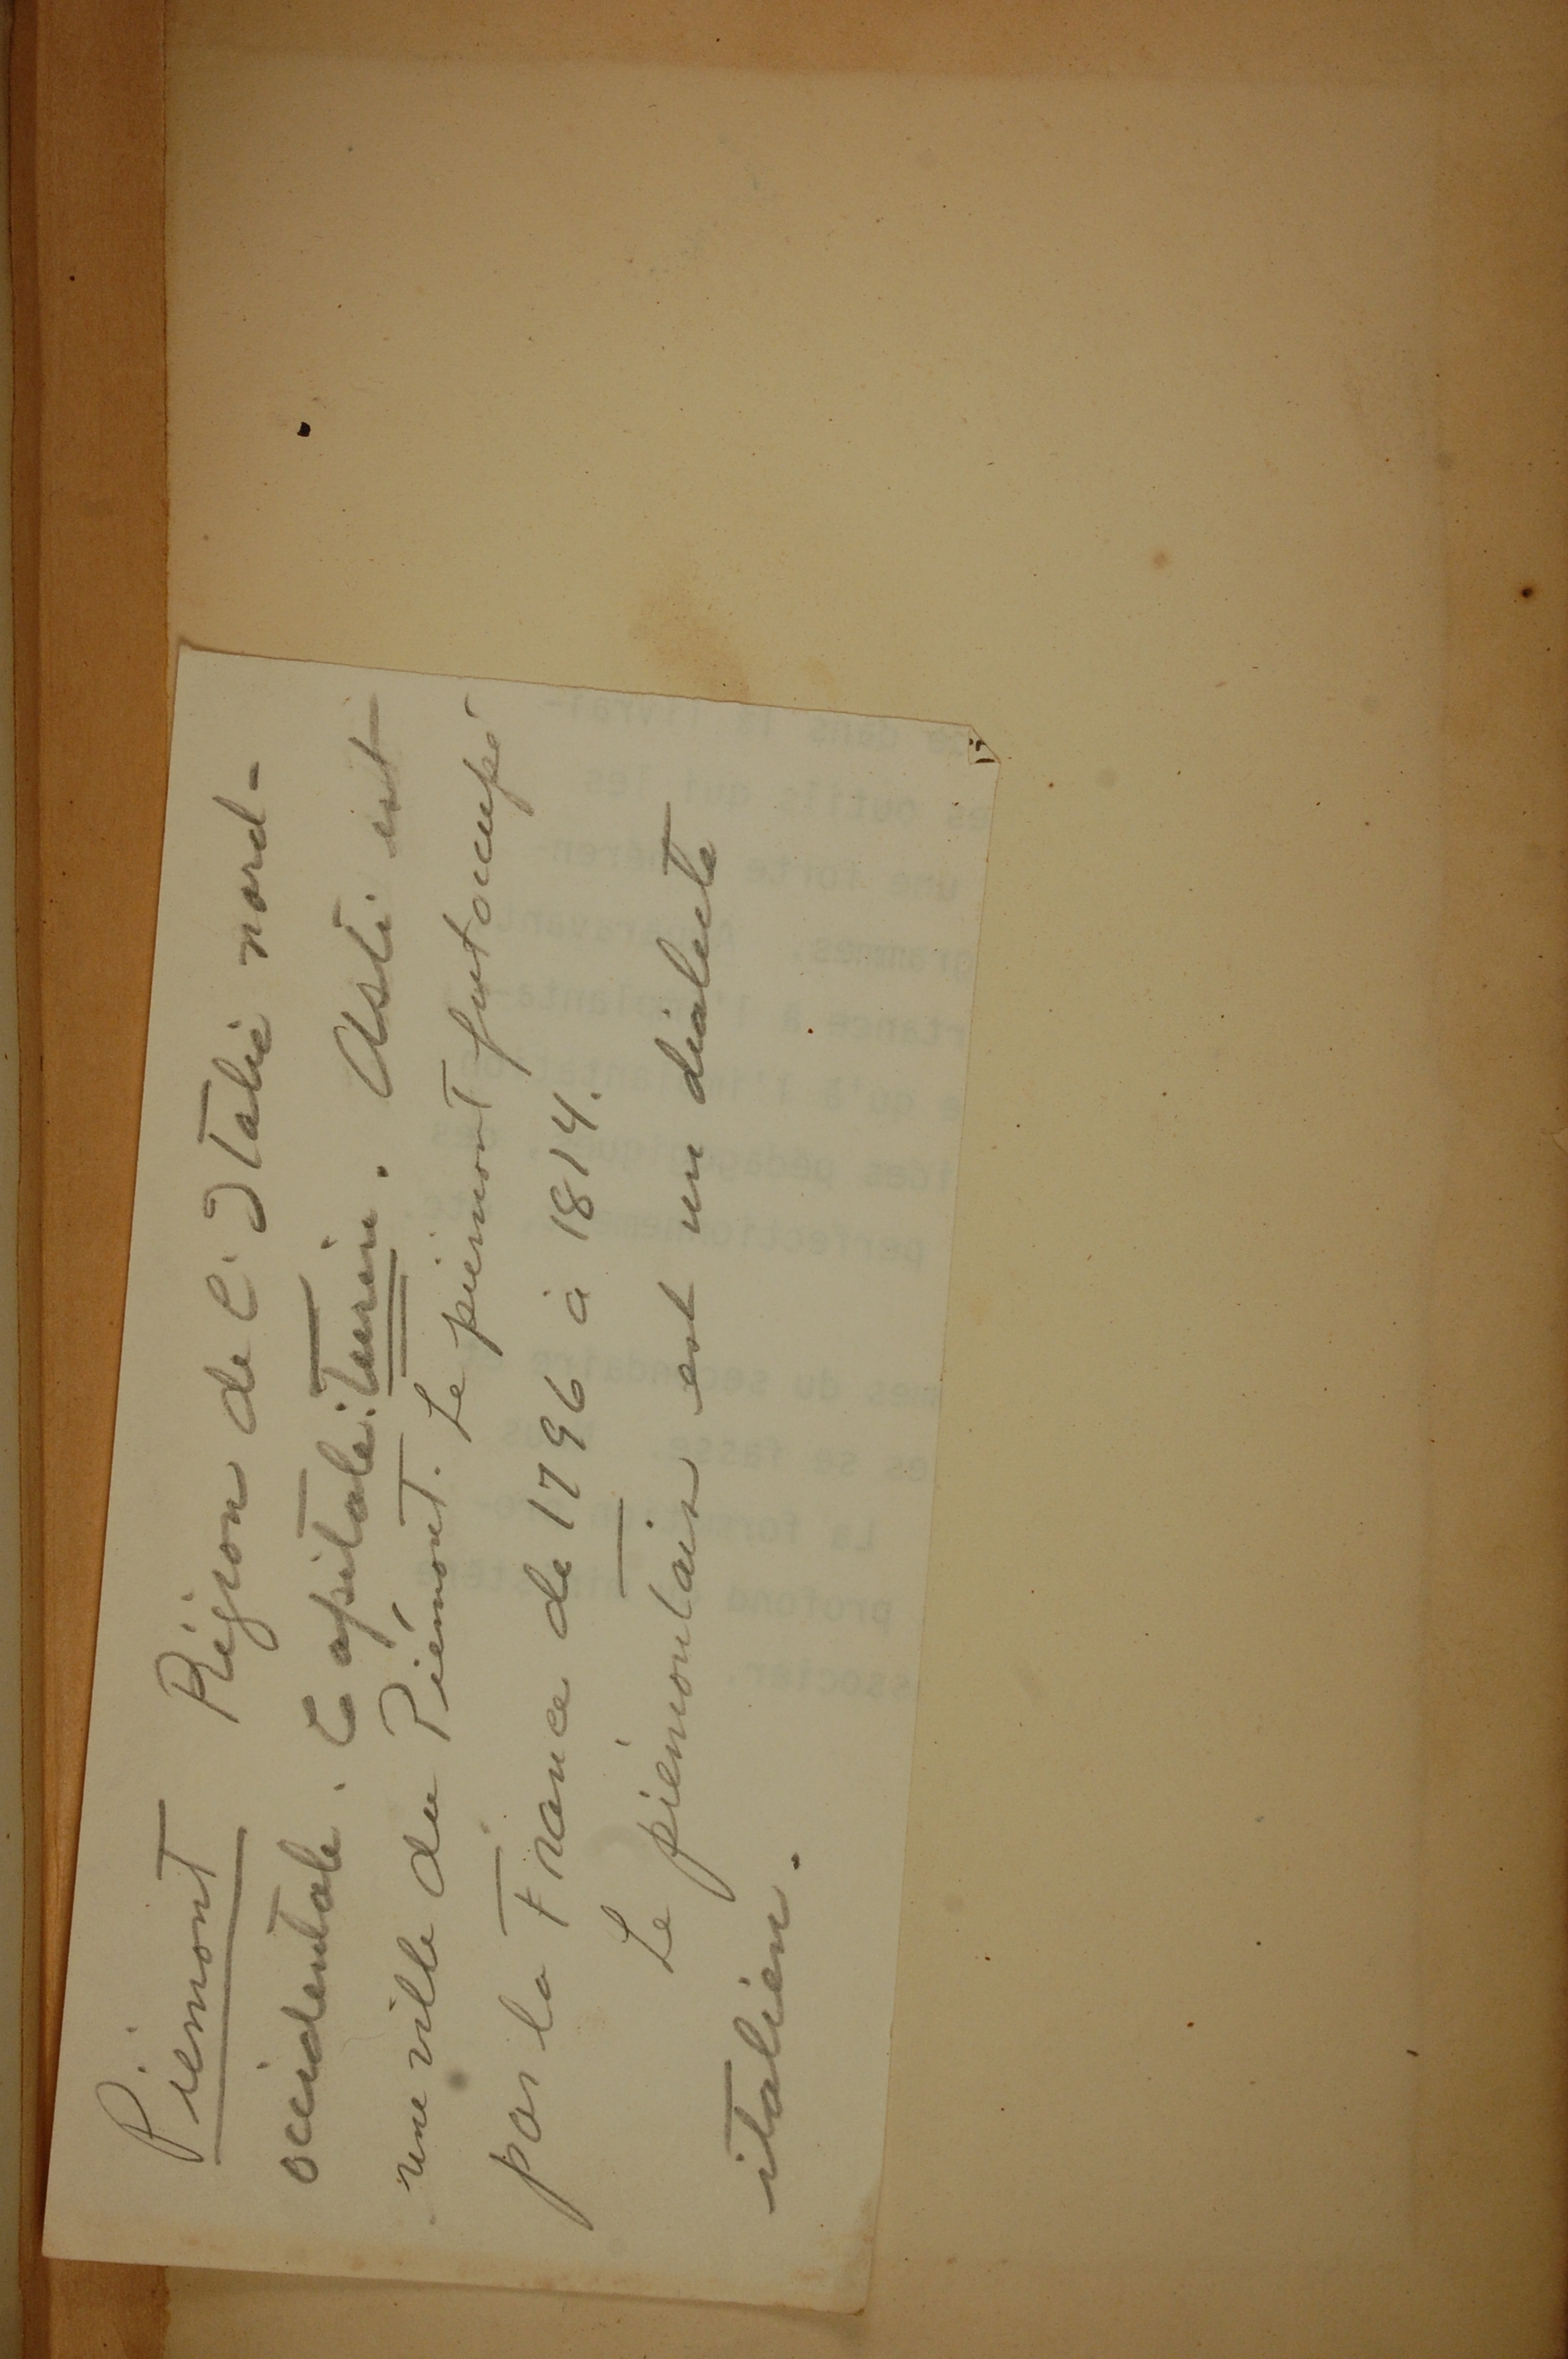 Piémont Région de l'Italie nord-
occidentale. Capitale: Turin. Asti est
une ville du Piémont. Le piémont fut occupé
par la France de 1796 à 1814.
Le piémontais est un dialecte
italien.
dans la livrai-
es outils qui les
une forte
grammes. Auparavant
rtance à l'implanta-
e qu'à l'implantation
ides pédagogiques, des
perfectionnement, etc.
mes du secondaire et
es se fasse.
La formation
profond
ssocier.